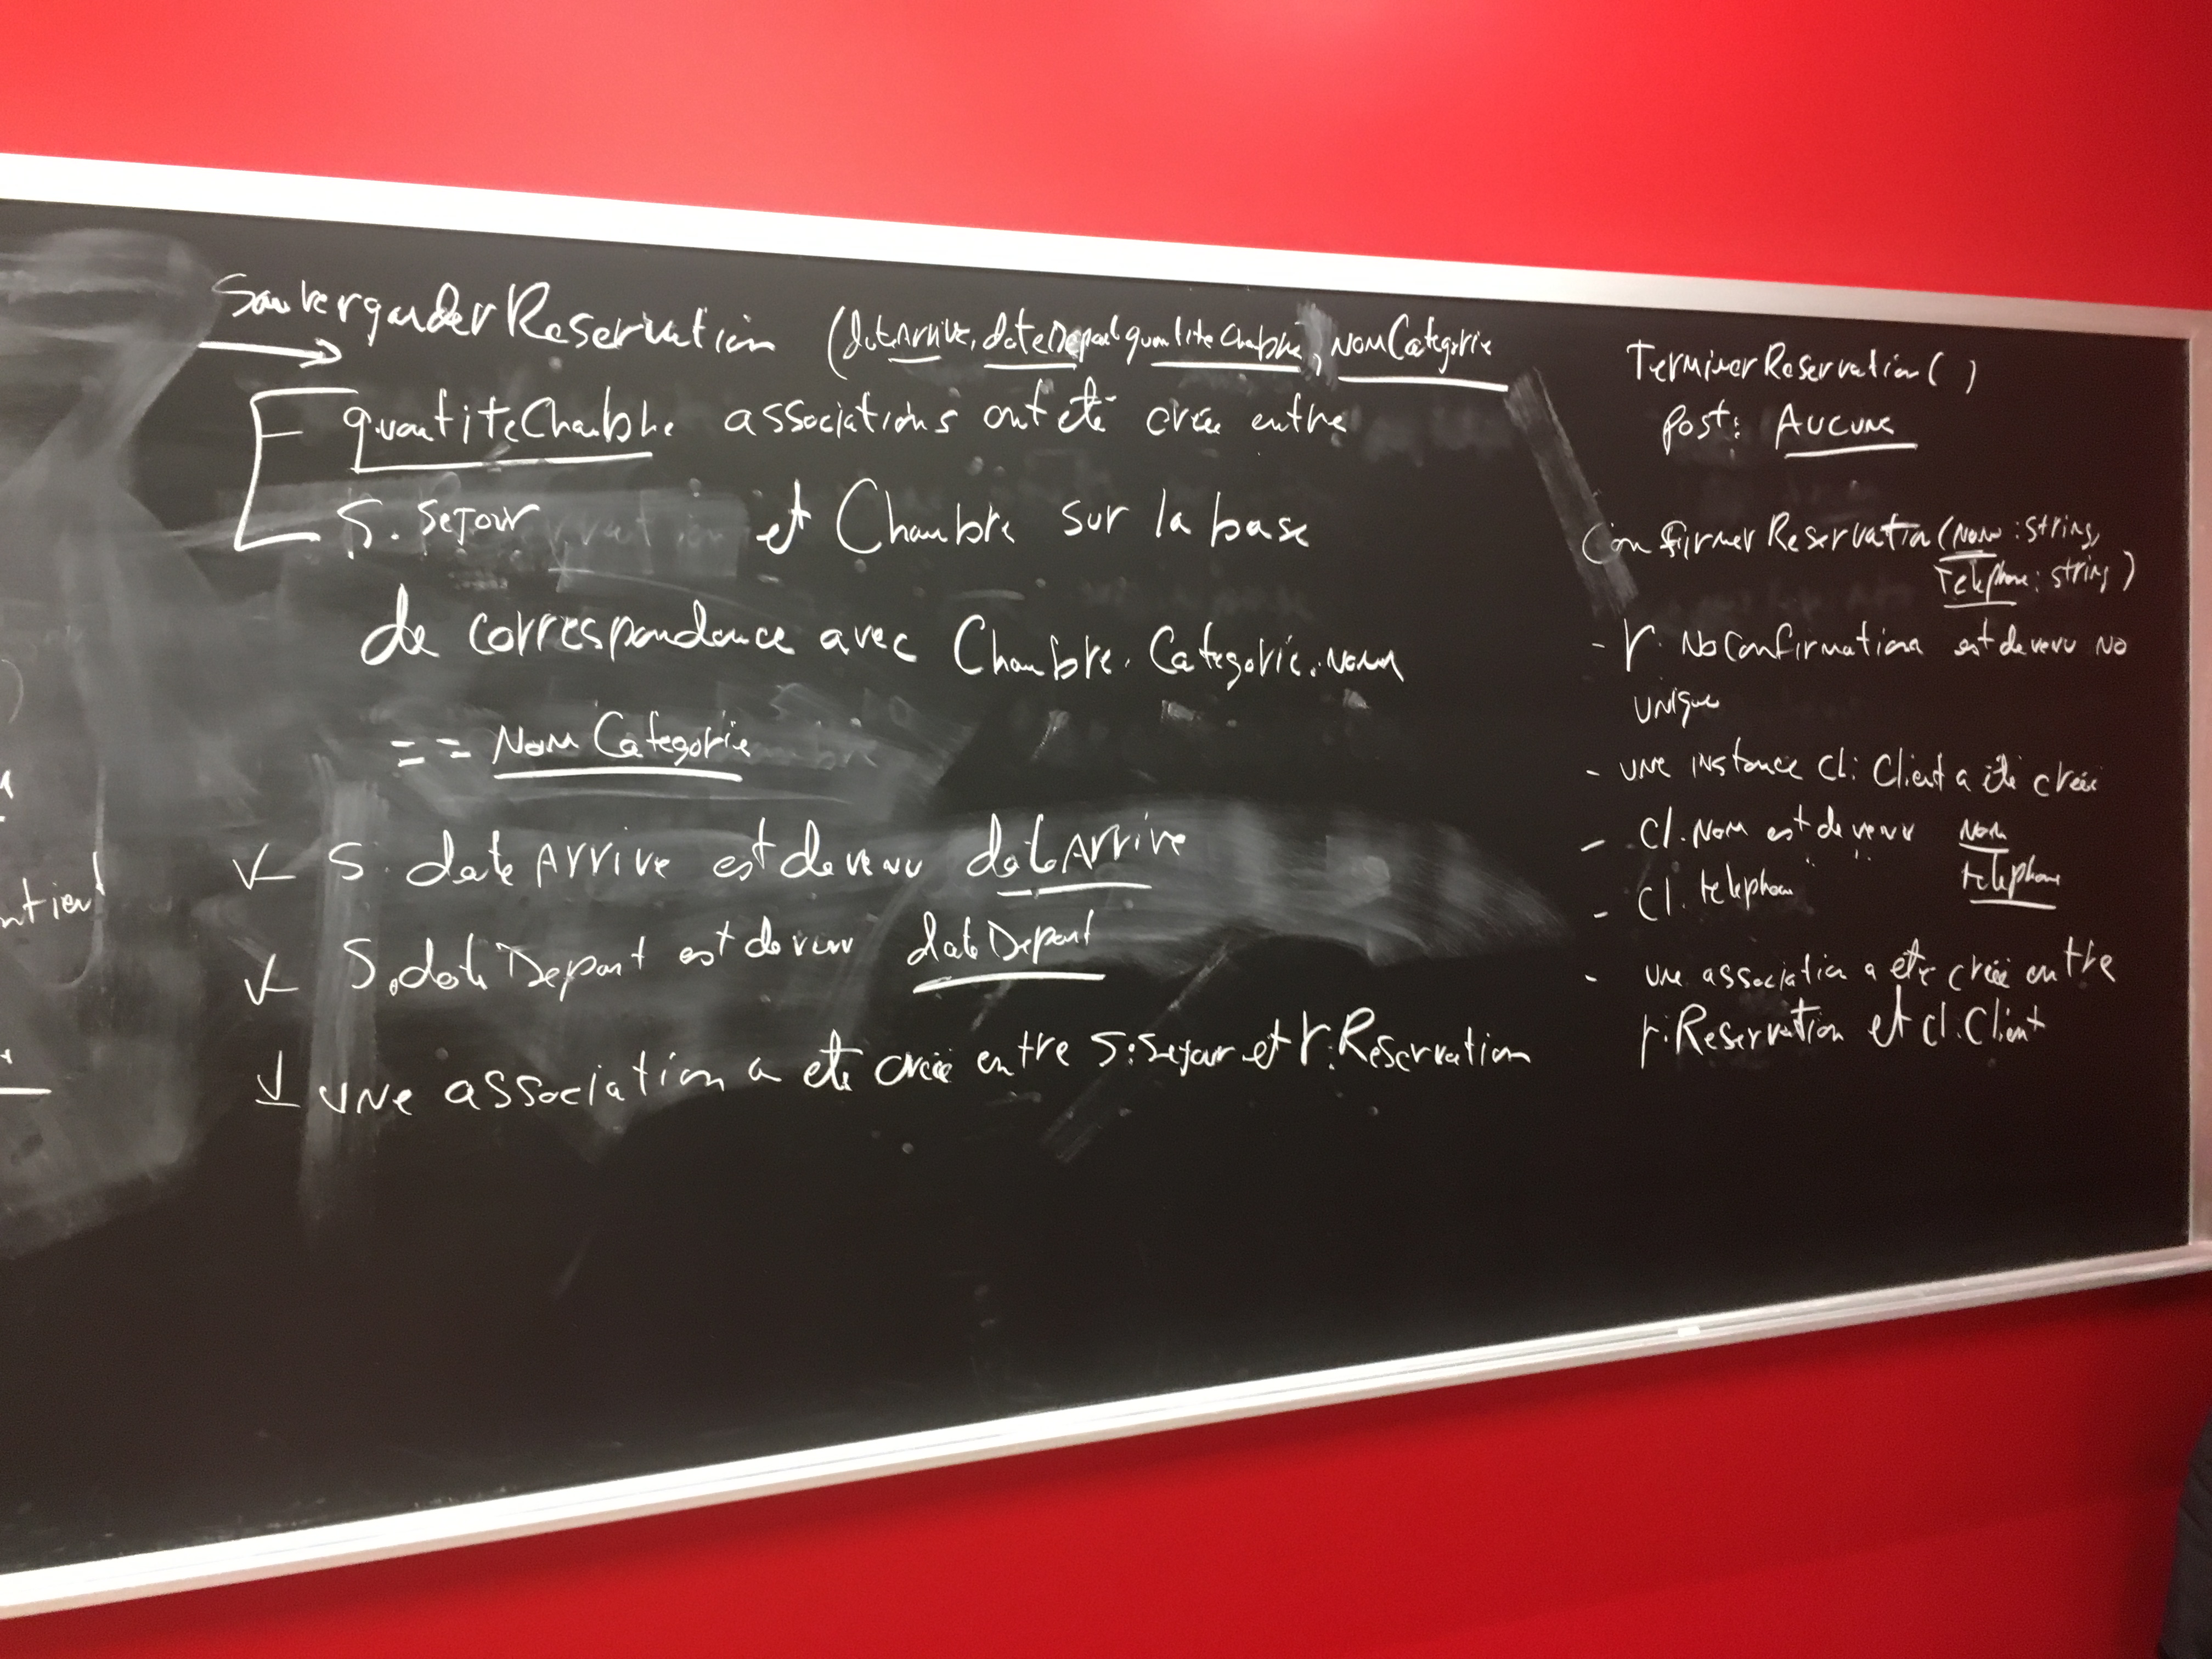 SauvergarderReservation (dateArrive, dateDepart quantiteChambre, NomCategorie
quantiteChambre associations ont été créé entre
S. Sejour et Chambre sur la base
de correspondance avec Chambre. Categorie. Nom
== NomCategorie
S. dateArrive est devenu dateArrive
S. dateDepart est devenu dateDepart
une association a été créé entre S:Sejour et r:Reservation
TerminerReservation( )
Post: AUCUNE
ConfirmerReservation (Nom : string,
Telephone : string)
- r. NoConfirmation est devenu No
unique
- une instance cl: Client a été créée
- Cl. Nom est devenu Nom
- Cl. telephone " " telephone
- une association a été créé entre
r:Reservation et cl.Client
ntiel